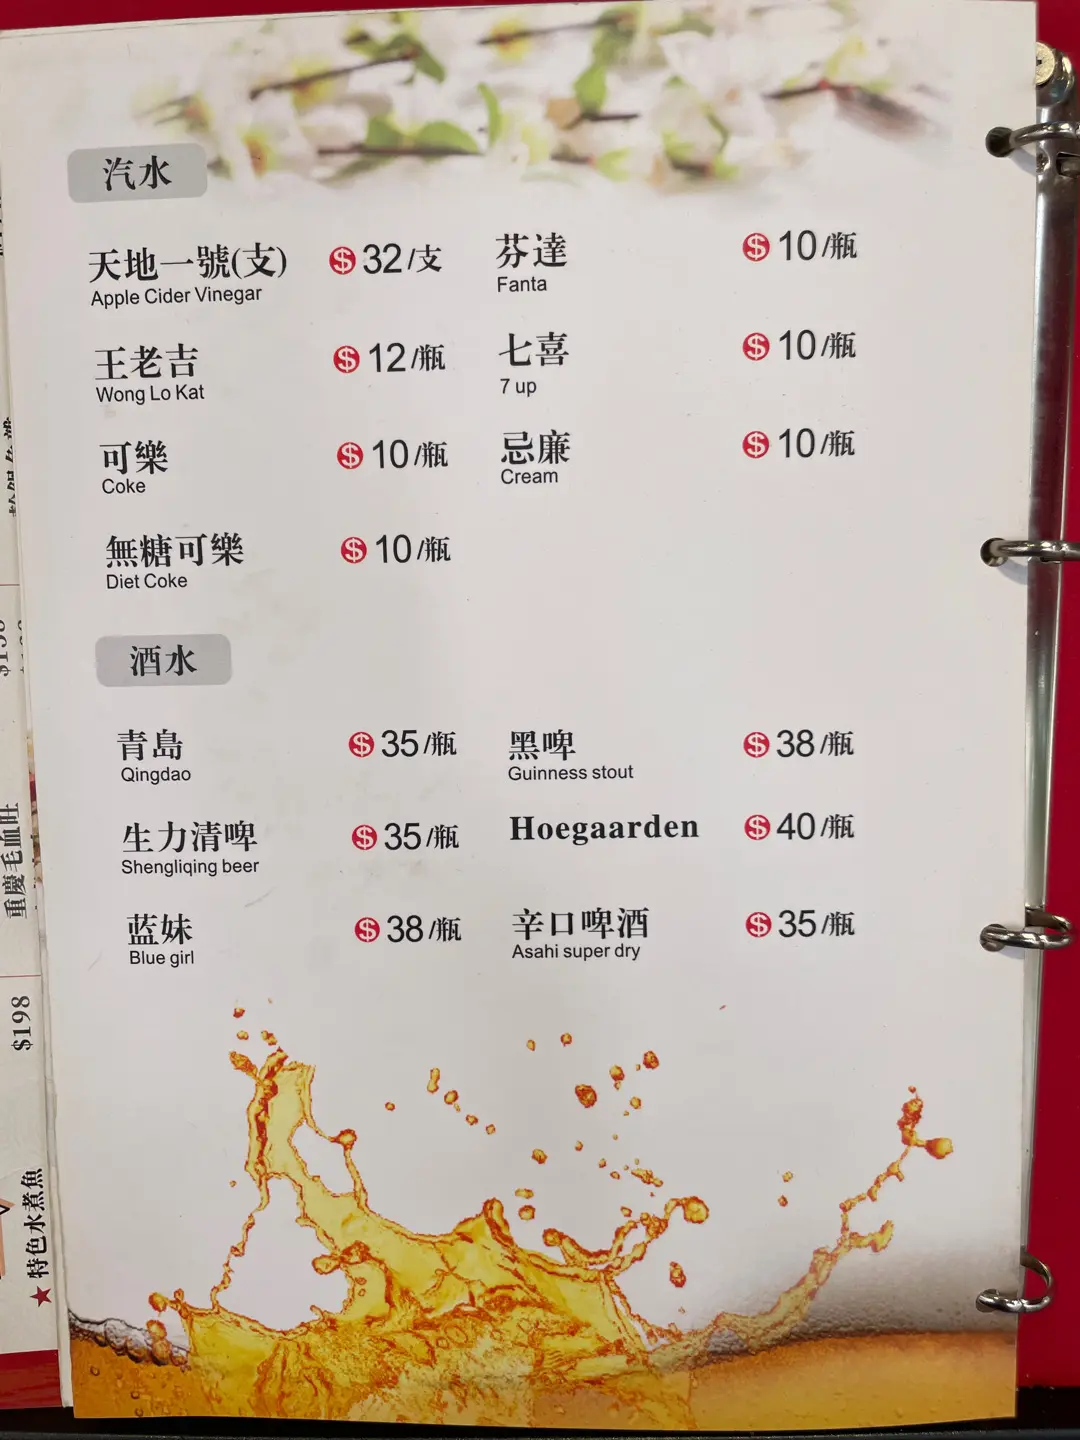 汽水
天地一號(支) $ 32/支
Apple Cider Vinegar
芬達 $ 10/瓶
Fanta
王老吉 $ 12/瓶
Wong Lo Kat
七喜 $ 10/瓶
7 up
可樂 $ 10/瓶
Coke
忌廉 $ 10/瓶
Cream
無糖可樂 $ 10/瓶
Diet Coke
酒水
青島 $ 35/瓶
Qingdao
黑啤 $ 38/瓶
Guinness stout
生力清啤 $ 35/瓶
Shengliqing beer
Hoegaarden $ 40/瓶
蓝妹 $ 38/瓶
Blue girl
辛口啤酒 $ 35/瓶
Asahi super dry
重慶毛血旺
$198
★特色水煮魚